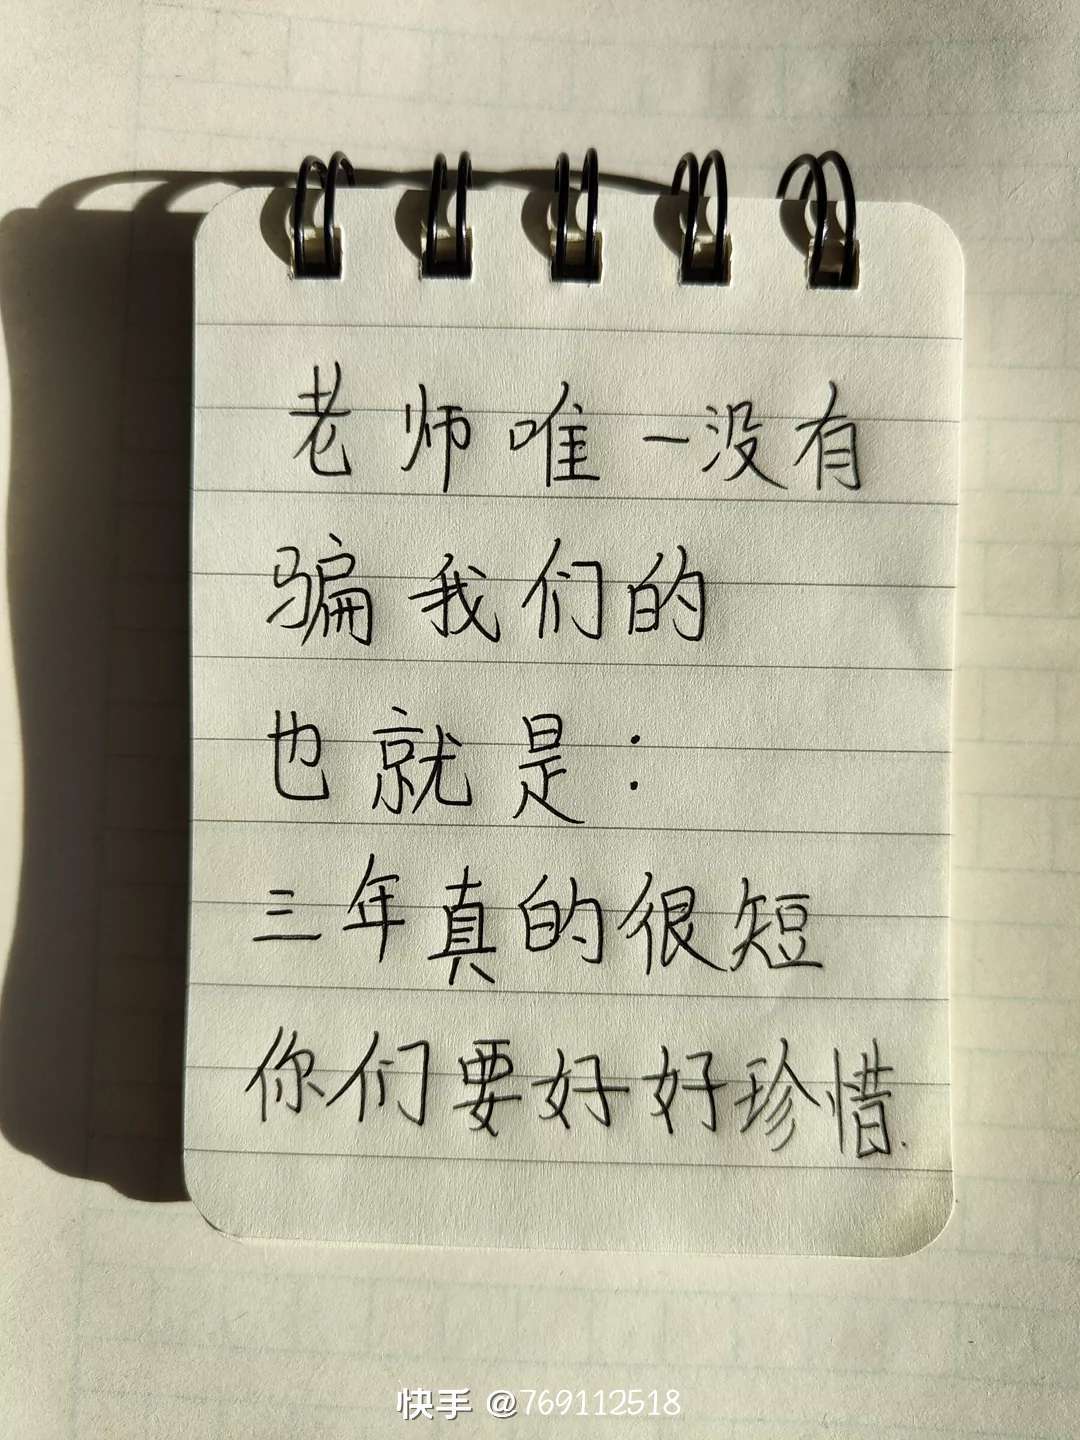 老师唯一没有
骗我们的
也就是：
三年真的很短
你们要好好珍惜.
快手 @769112518